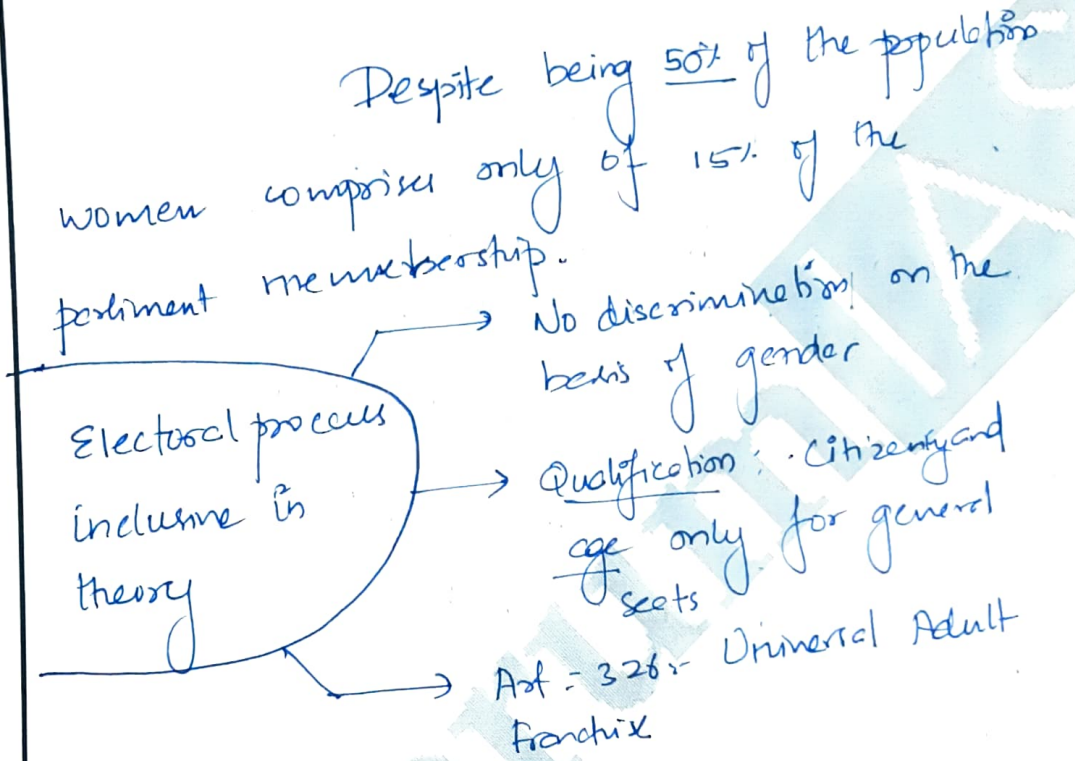 Despite being 50% of the population
women comprises only of 15% of the
parliment membership.
Electoral process
inclusive in
theory
→ No discrimination on the
basis of gender
→ Qualification : Citizenty and
age only for general
seats
→ Art - 326 :- Universal Adult
Franchise